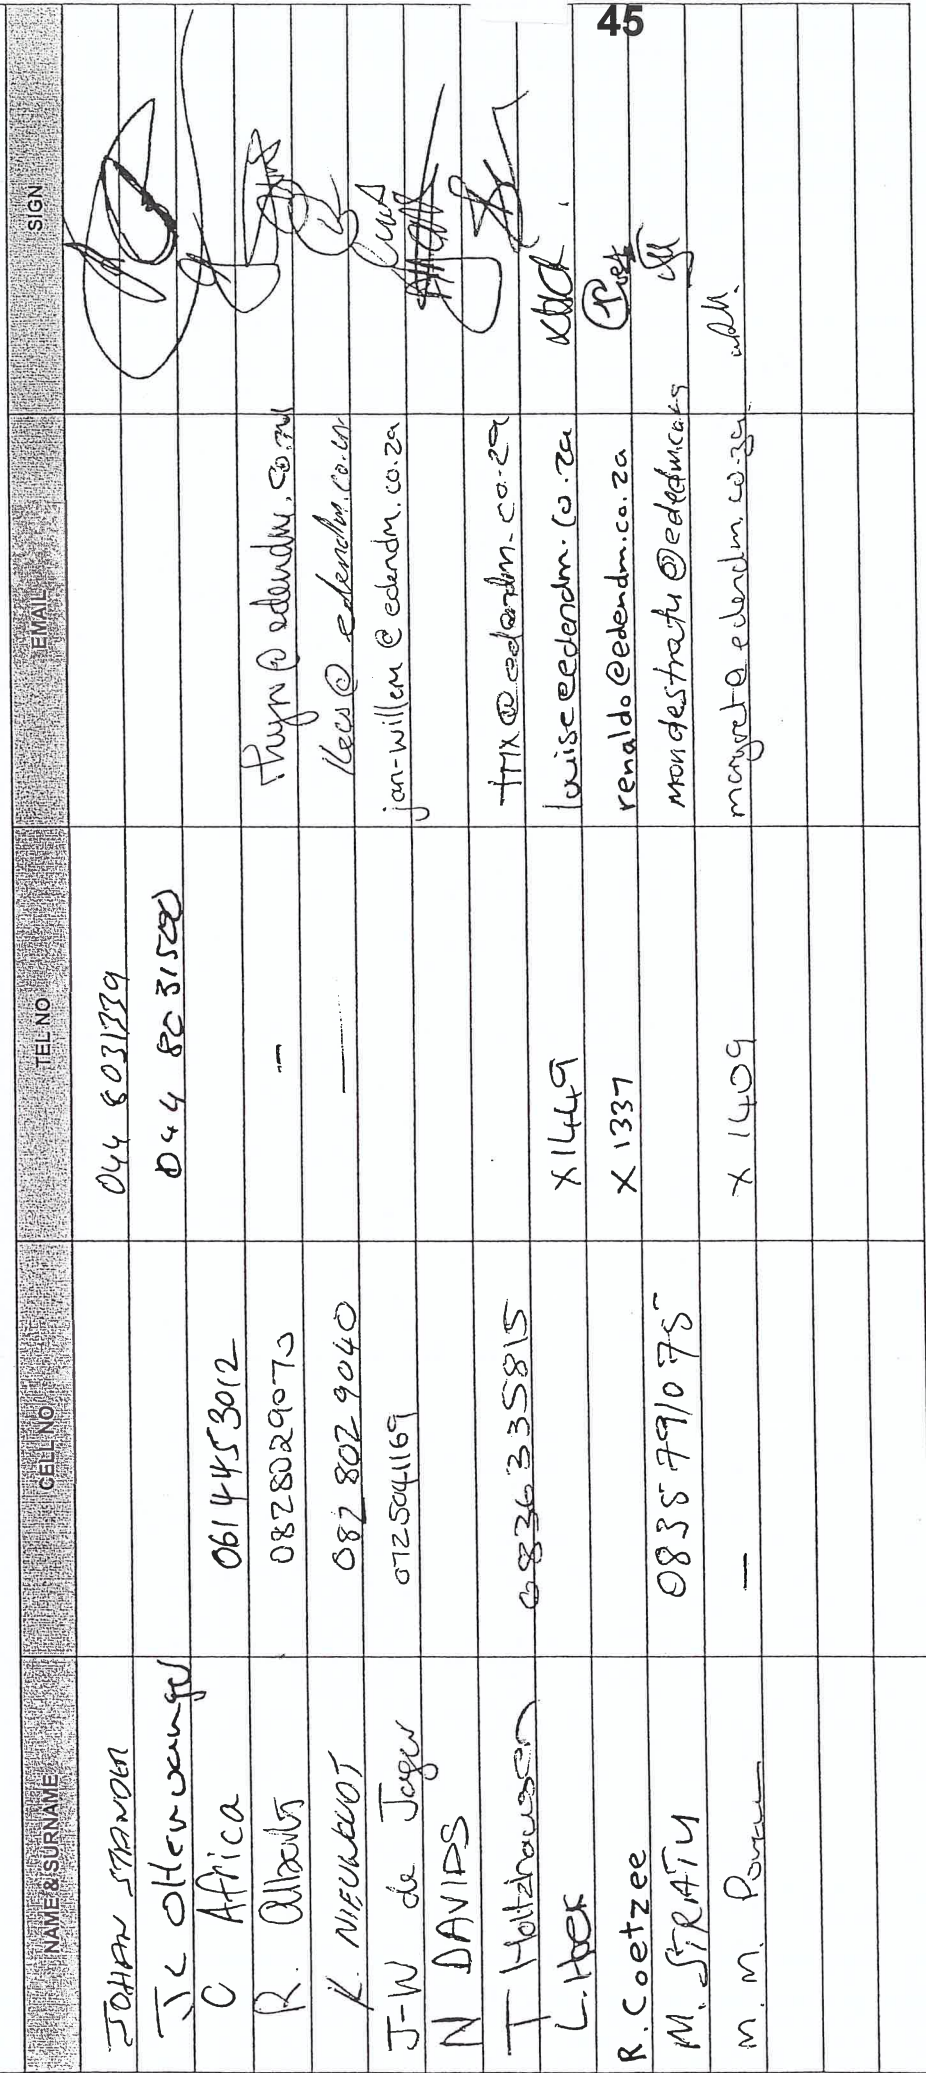 45
NAME & SURNAME CELL NO TEL NO EMAIL SIGN
JOHAN STANDER 044 8031339
J L Ottervanger 044 8031500
C Africa 0614453012
R. Alberts 0828029070 - @edendm.co.za
K. NIEUWOUDT 082 802 9040 — kees@edendm.co.za
J-W de Jager 0725041169 jan-willem@edendm.co.za
N DAVIDS
T Holtzhausen 0836335815 @edendm.co.za
L. Hoek X1449 louise@edendm.co.za
R. Coetzee X1337 renaldo@edendm.co.za
M. STRATU 0835791075
M. M. — X 1409 edendm.co.za